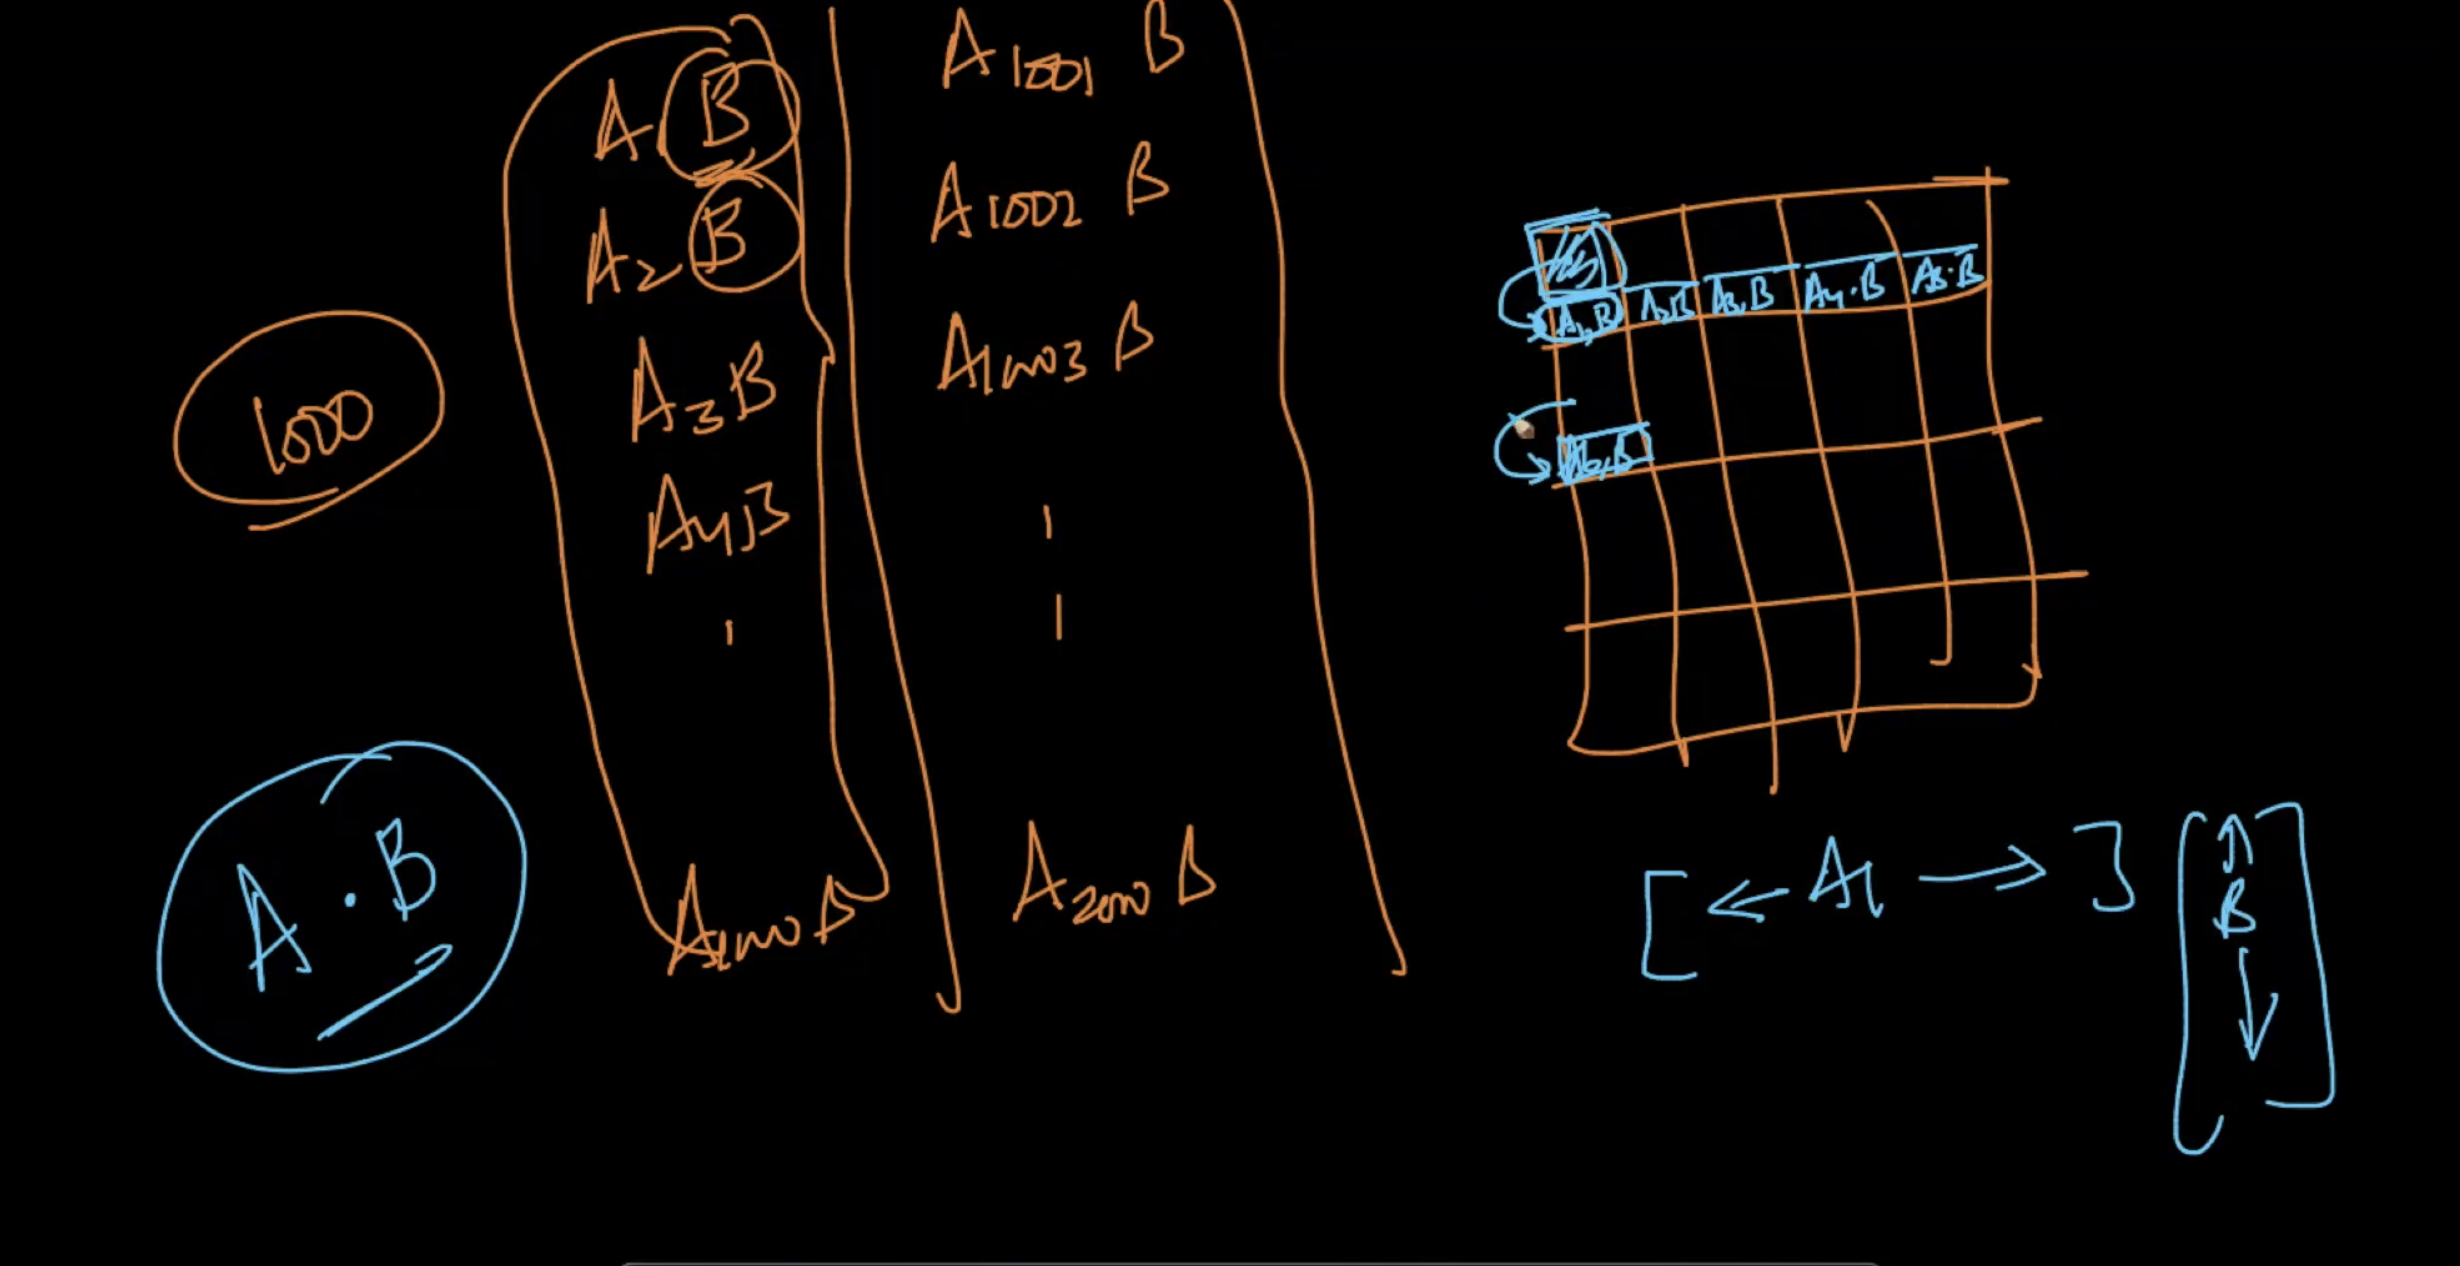 A₁B
A₂B
A₃B
A₄B
A₁₀₀₀B
A₁₀₀₁ B
A₁₀₀₂ B
A₁₀₀₃ B
A₂₀₀₀ B
1000
A · B
A₁B A₂B A₃.B A₄.B A₅.B
A₆.B
[ ← A₁ → ] [ ↑ B ↓ ]